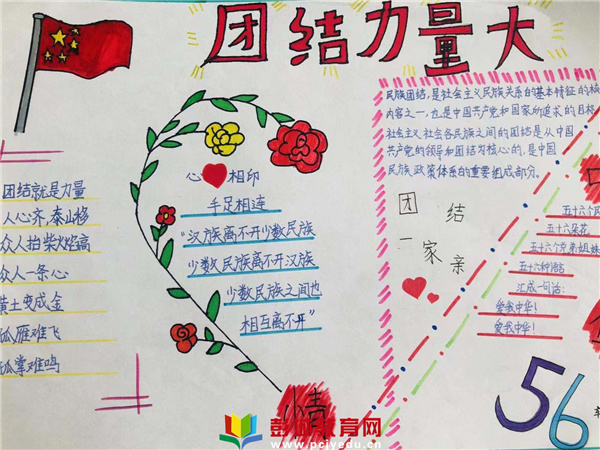 团结力量大
团结就是力量
人心齐,泰山移
众人拍柴火焰高
众人一条心
黄土变成金
孤雁难飞
孤掌难鸣
心 相印
手足相连
“汉族离不开少数民族
少数民族离不开汉族
少数民族之间也
相互离不开”
民族团结,是社会主义民族关系的基本特征的核
内容之一,也是中国共产党和国家所追求的目标
社会主义社会各民族之间的团结是从中国
共产党的领导和团结为核心的,是中国
民族政策体系的重要组成部分。
团 结
一
家
亲
五十六个民
五十六朵花
五十六个兄弟姐妹
五十六种语
汇成一句话:
爱我中华!
爱我中华!
56
彭州教育网
www.pcjyedu.cn